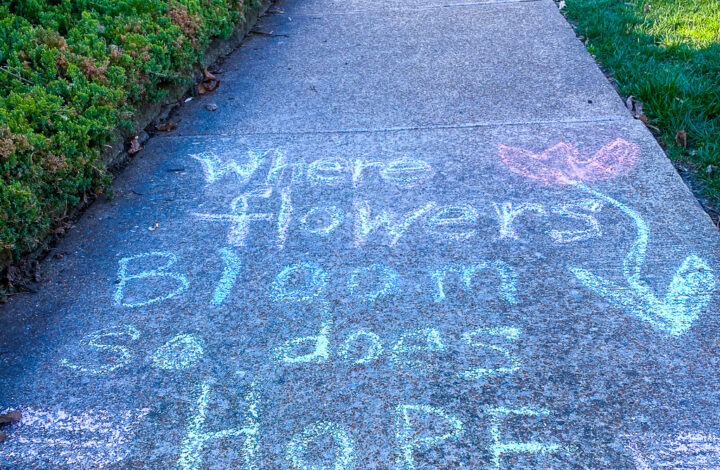 Where
flowers
Bloom
So doas
HoPE